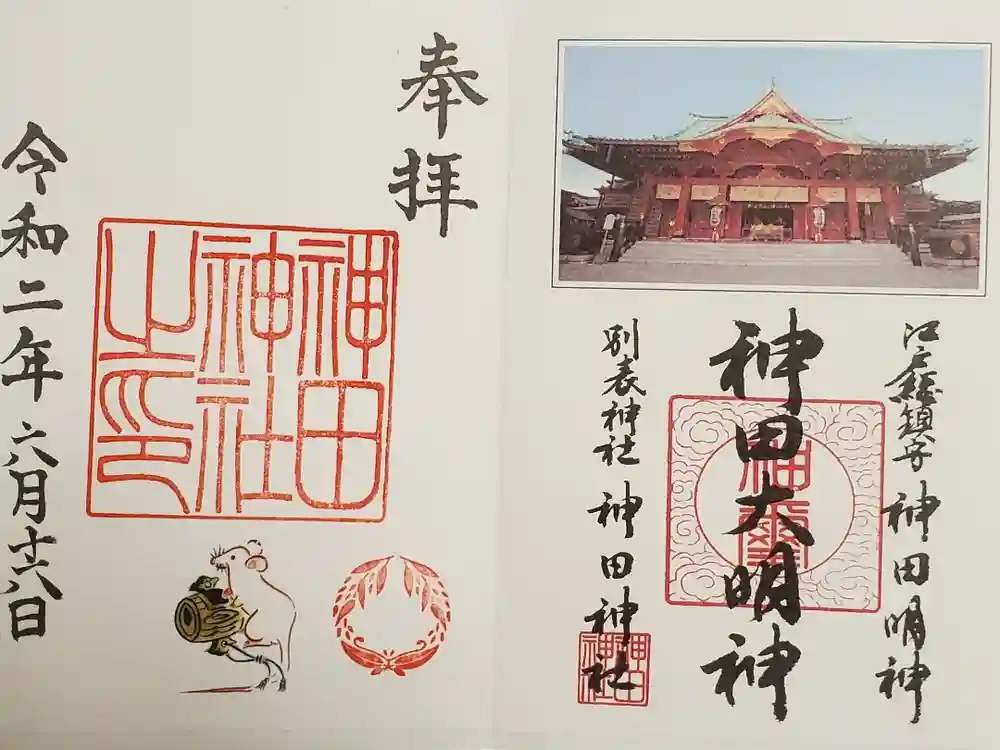 江戸総鎮守 神田明神
神田大明神
別表神社 神田神社
神田神社
奉拝
神田神社之印
令和二年六月十六日